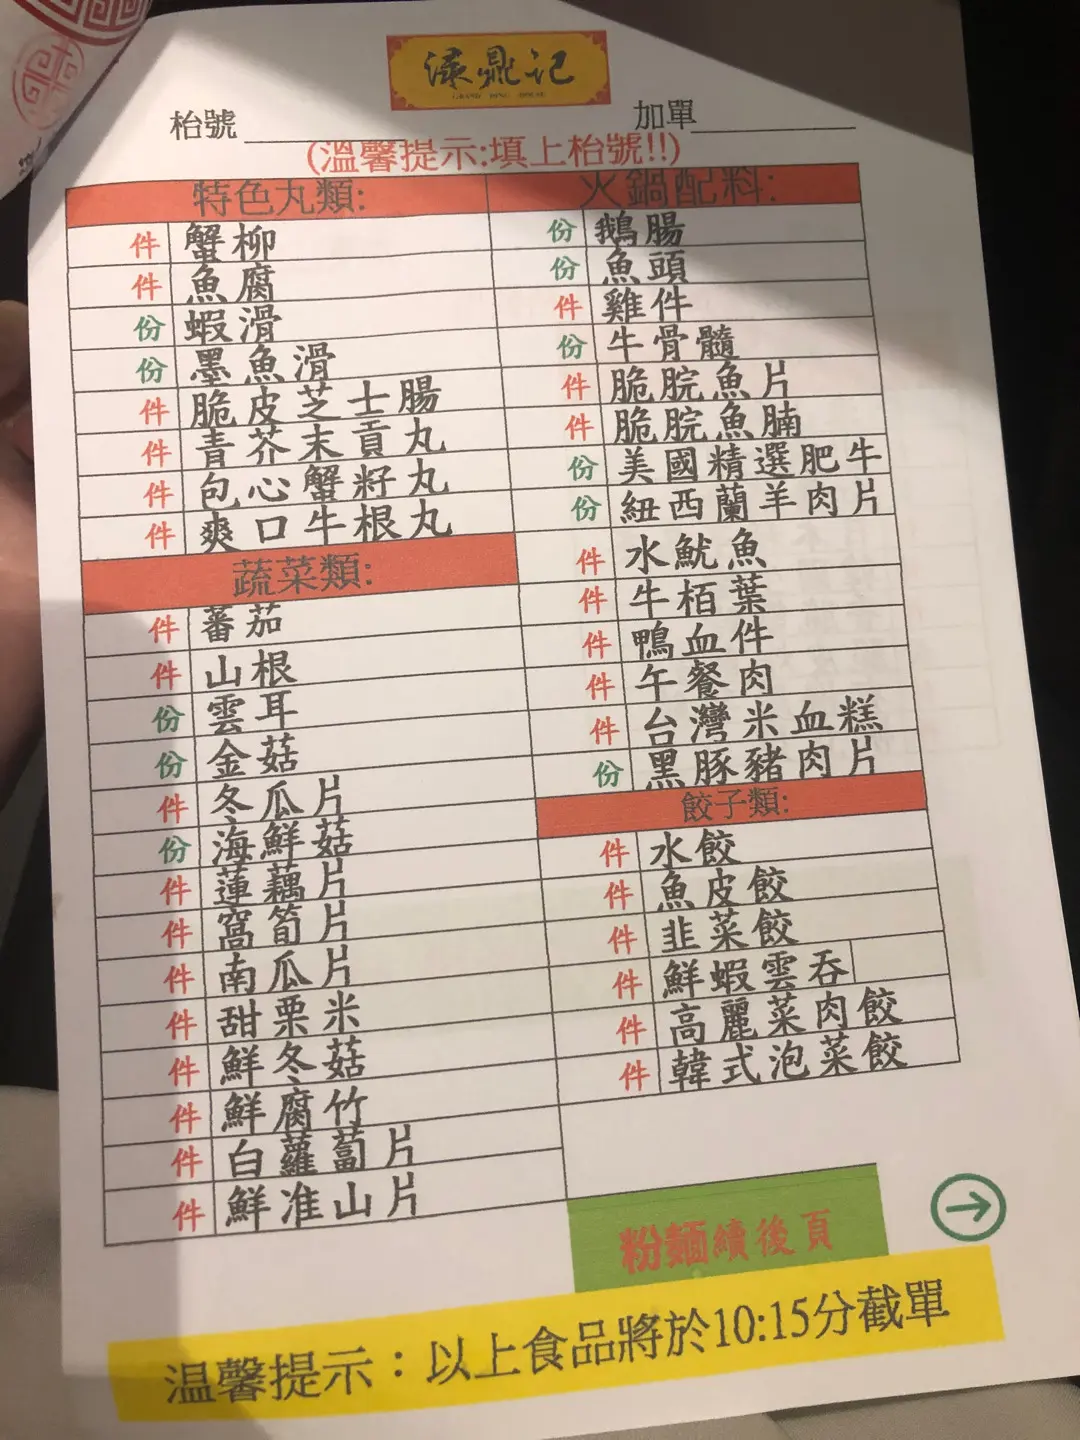 濠鼎記
枱號
加單
(溫馨提示:填上枱號!!)
特色丸類:
件 蟹柳
件 魚腐
份 蝦滑
份 墨魚滑
件 脆皮芝士腸
件 青芥末貢丸
件 包心蟹籽丸
件 爽口牛根丸
蔬菜類:
件 蕃茄
件 山根
份 雲耳
份 金菇
件 冬瓜片
份 海鮮菇
件 蓮藕片
件 窩筍片
件 南瓜片
件 甜栗米
件 鮮冬菇
件 鮮腐竹
件 白蘿蔔片
件 鮮准山片
火鍋配料:
份 鵝腸
份 魚頭
件 雞件
份 牛骨髓
件 脆脘魚片
件 脆脘魚腩
份 美國精選肥牛
份 紐西蘭羊肉片
件 水魷魚
件 牛栢葉
件 鴨血件
件 午餐肉
件 台灣米血糕
份 黑豚豬肉片
餃子類:
件 水餃
件 魚皮餃
件 韭菜餃
件 鮮蝦雲吞
件 高麗菜肉餃
件 韓式泡菜餃
粉麵續後頁
温馨提示：以上食品將於10:15分截單